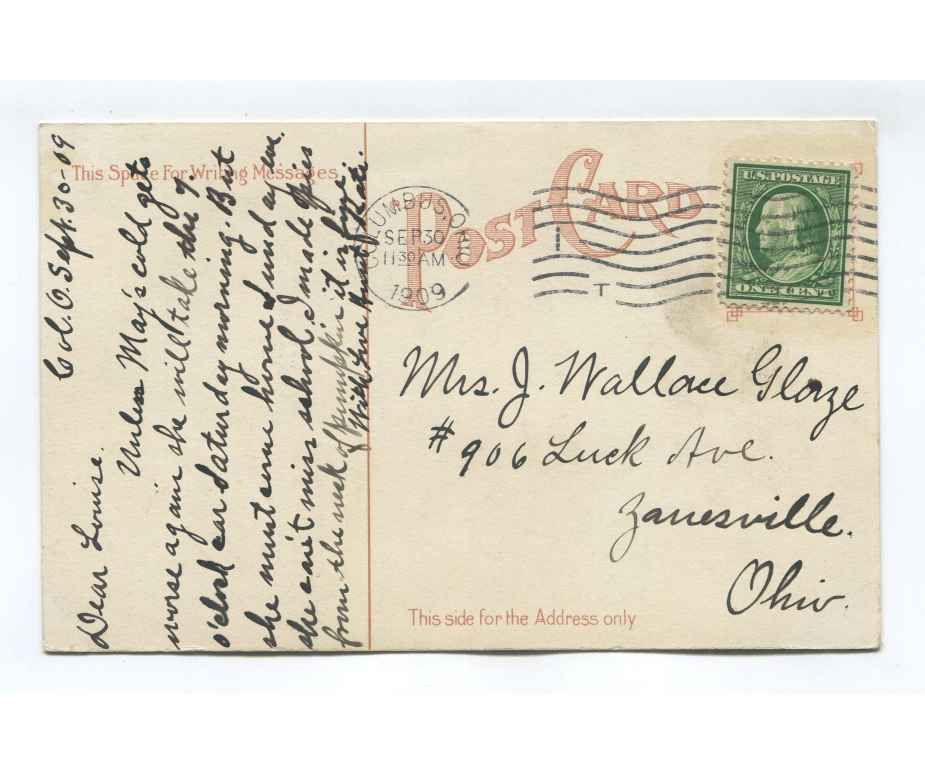 This Space For Writing Messages
POST CARD
COLUMBUS, O.
SEP 30
11 30 AM
1909
T
U.S. POSTAGE
ONE CENT
Col. O. Sept. 30-09
Dear Louise.
Unless May's cold gets
worse again she will take the 9
o'clock car Saturday morning. But
she must come home Sunday eve.
she can't miss school. I made pies
from the neck of pumpkin it is fine.
With Love
Mrs. J. Wallace Glaze
# 906 Luck Ave.
Zanesville.
Ohio.
This side for the Address only